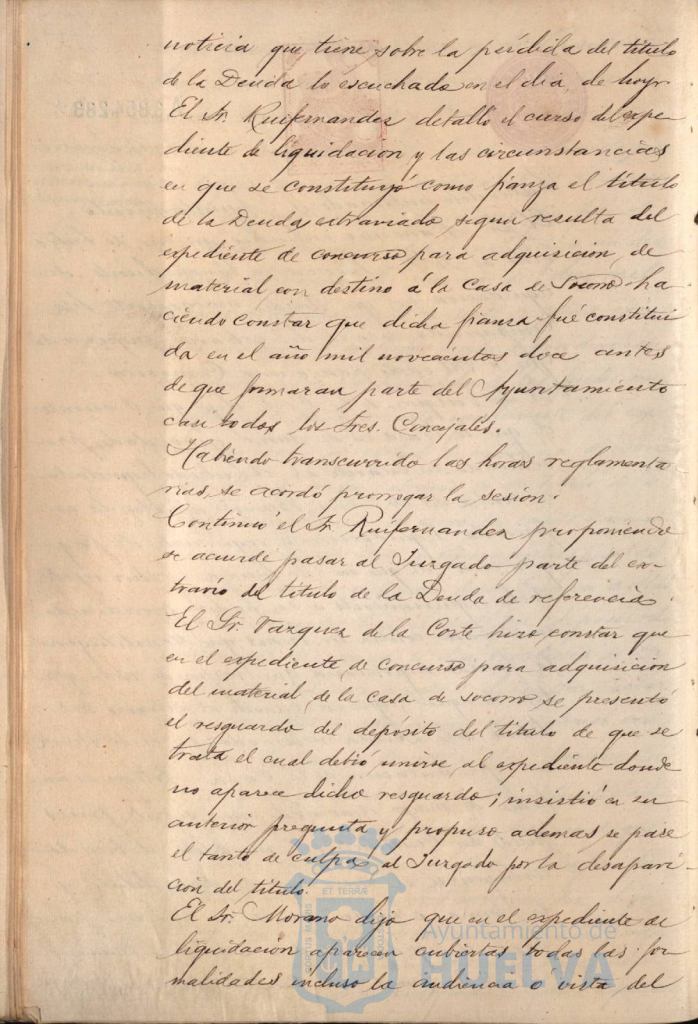 noticia que tiene sobre la pérdida del titulo
de la Deuda lo escuchado en el dia de hoy.
El Sr. Ruifernandez detalló el curso del expe-
diente de liquidación y las circunstancias
en que se constituyó como fianza el titulo
de la Deuda extraviado segun resulta del
expediente de concurso para adquisicion de
material con destino á la Casa de Socorro ha
ciendo constar que dicha fianza fué constitui
da en el año mil novecientos doce antes
de que formaran parte del Ayuntamiento
casi todos los Sres. Concejales.
Habiendo transcurrido las horas reglamenta
rias, se acordó prorrogar la sesión.
Continuó el Sr. Ruifernandez proponiendo
se acuerde pasar al Juzgado parte del ex-
travío del titulo de la Deuda de referencia.
El Sr. Vazquez de la Corte hizo constar que
en el expediente de concurso para adquisicion
del material de la casa de socorro se presentó
el resguardo del depósito del titulo de que se
trata el cual debió unirse al expediente donde
no aparece dicho resguardo; insistió en su
anterior pregunta y propuso ademas se pase
el tanto de culpa al Juzgado por la desapari-
ción del titulo.
El Sr. Morano dijo que en el expediente de
liquidación aparecen cubiertas todas las for
malidades incluso la audiencia o vista del
Ayuntamiento de
HUELVA
ET TERRÆ